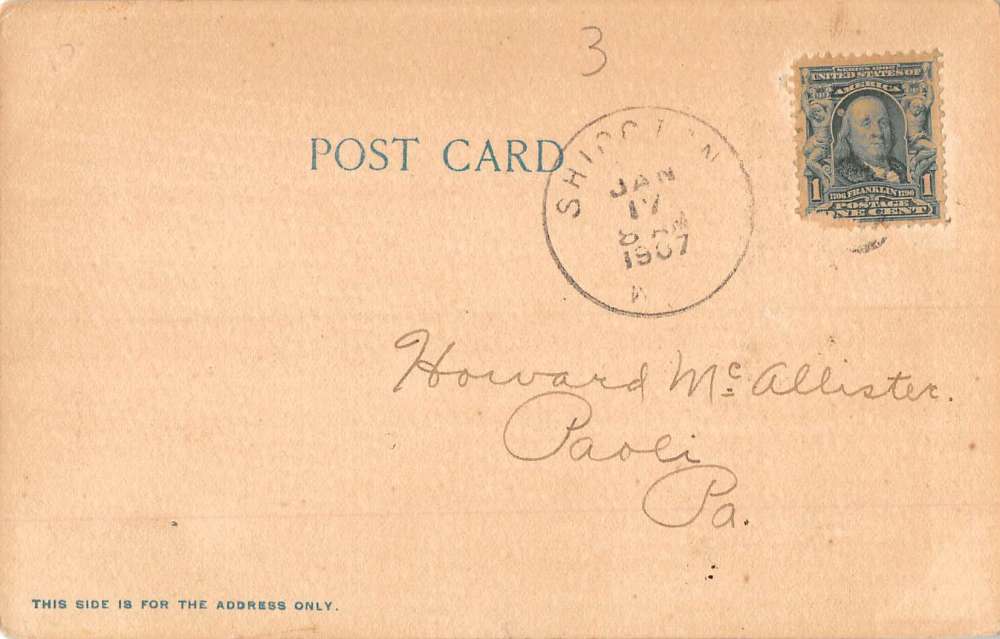 3
POST CARD
SHIOCTON
JAN
17
8 AM
1907
W
SERIES 1902
UNITED STATES OF
AMERICA
1 1706 FRANKLIN 1790 1
POSTAGE
ONE CENT
Howard McAllister.
Paoli
Pa.
THIS SIDE IS FOR THE ADDRESS ONLY.